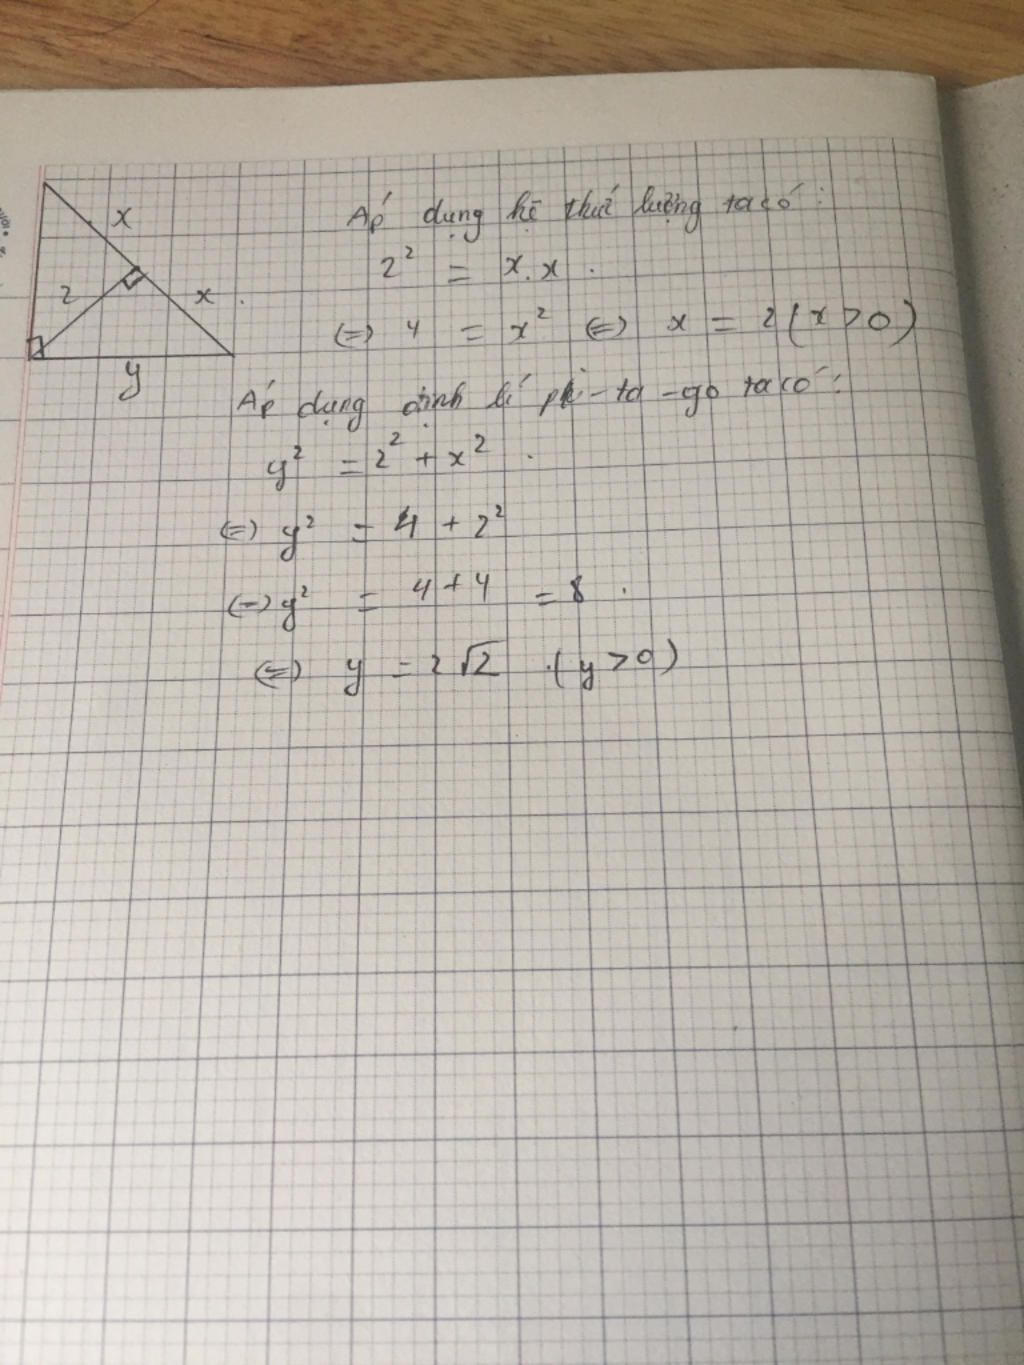 x
Áp dụng hệ thức lượng ta có :
2² = x.x .
2
x .
(=) 4 = x² (=) x = 2 (x>0)
y
Áp dụng định lí pi-ta-go ta có :
y² = 2² + x² .
(=) y² = 4 + 2²
(=) y² = 4 + 4 = 8 .
(=) y = 2√2 . (y>0)